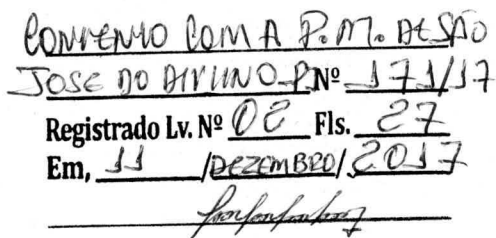 CONVENIO COM A P.M. DE SÃO
JOSE DO DIVINO-P Nº 171/17
Registrado Lv. Nº 02 Fls. 27
Em, 11 /DEZEMBRO/ 2017